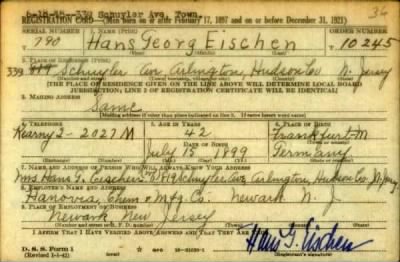 6-18-45-339 Schuyler Ave, Town.
36
REGISTRATION CARD—(Men born on or after February 17, 1897 and on or before December 31, 1921)
SERIAL NUMBER
1. NAME (Print)
ORDER NUMBER
U 790
Hans Georg Eischen
10245
(First) (Middle) (Last)
2. PLACE OF RESIDENCE (Print)
339 Schuyler Ave Arlington, Hudson Co N. Jersey
(Number and street) (Town, township, village, or city) (County) (State)
[THE PLACE OF RESIDENCE GIVEN ON THE LINE ABOVE WILL DETERMINE LOCAL BOARD
JURISDICTION; LINE 2 OF REGISTRATION CERTIFICATE WILL BE IDENTICAL]
3. MAILING ADDRESS
Same
[Mailing address if other than place indicated on line 2. If same insert word same]
4. TELEPHONE
5. AGE IN YEARS
6. PLACE OF BIRTH
Kearny 2-2027M
42
Frankfurt-M
DATE OF BIRTH
(Town or county)
July 15 1899
Germany
(Exchange) (Number)
(Mo.) (Day) (Yr.)
(State or country)
7. NAME AND ADDRESS OF PERSON WHO WILL ALWAYS KNOW YOUR ADDRESS
Mrs. Hans G. Eischen 819 Schuyler Ave Arlington, Hudson Co N. Jersey
8. EMPLOYER'S NAME AND ADDRESS
Hanovia Chem & Mfg. Co. Newark N. J.
9. PLACE OF EMPLOYMENT OR BUSINESS
Newark New Jersey
(Number and street or R. F. D. number) (Town) (County) (State)
I AFFIRM THAT I HAVE VERIFIED ABOVE ANSWERS AND THAT THEY ARE TRUE.
D. S. S. Form 1
(Revised 4-1-42)
(over)
16-21630-1
Hans G. Eischen